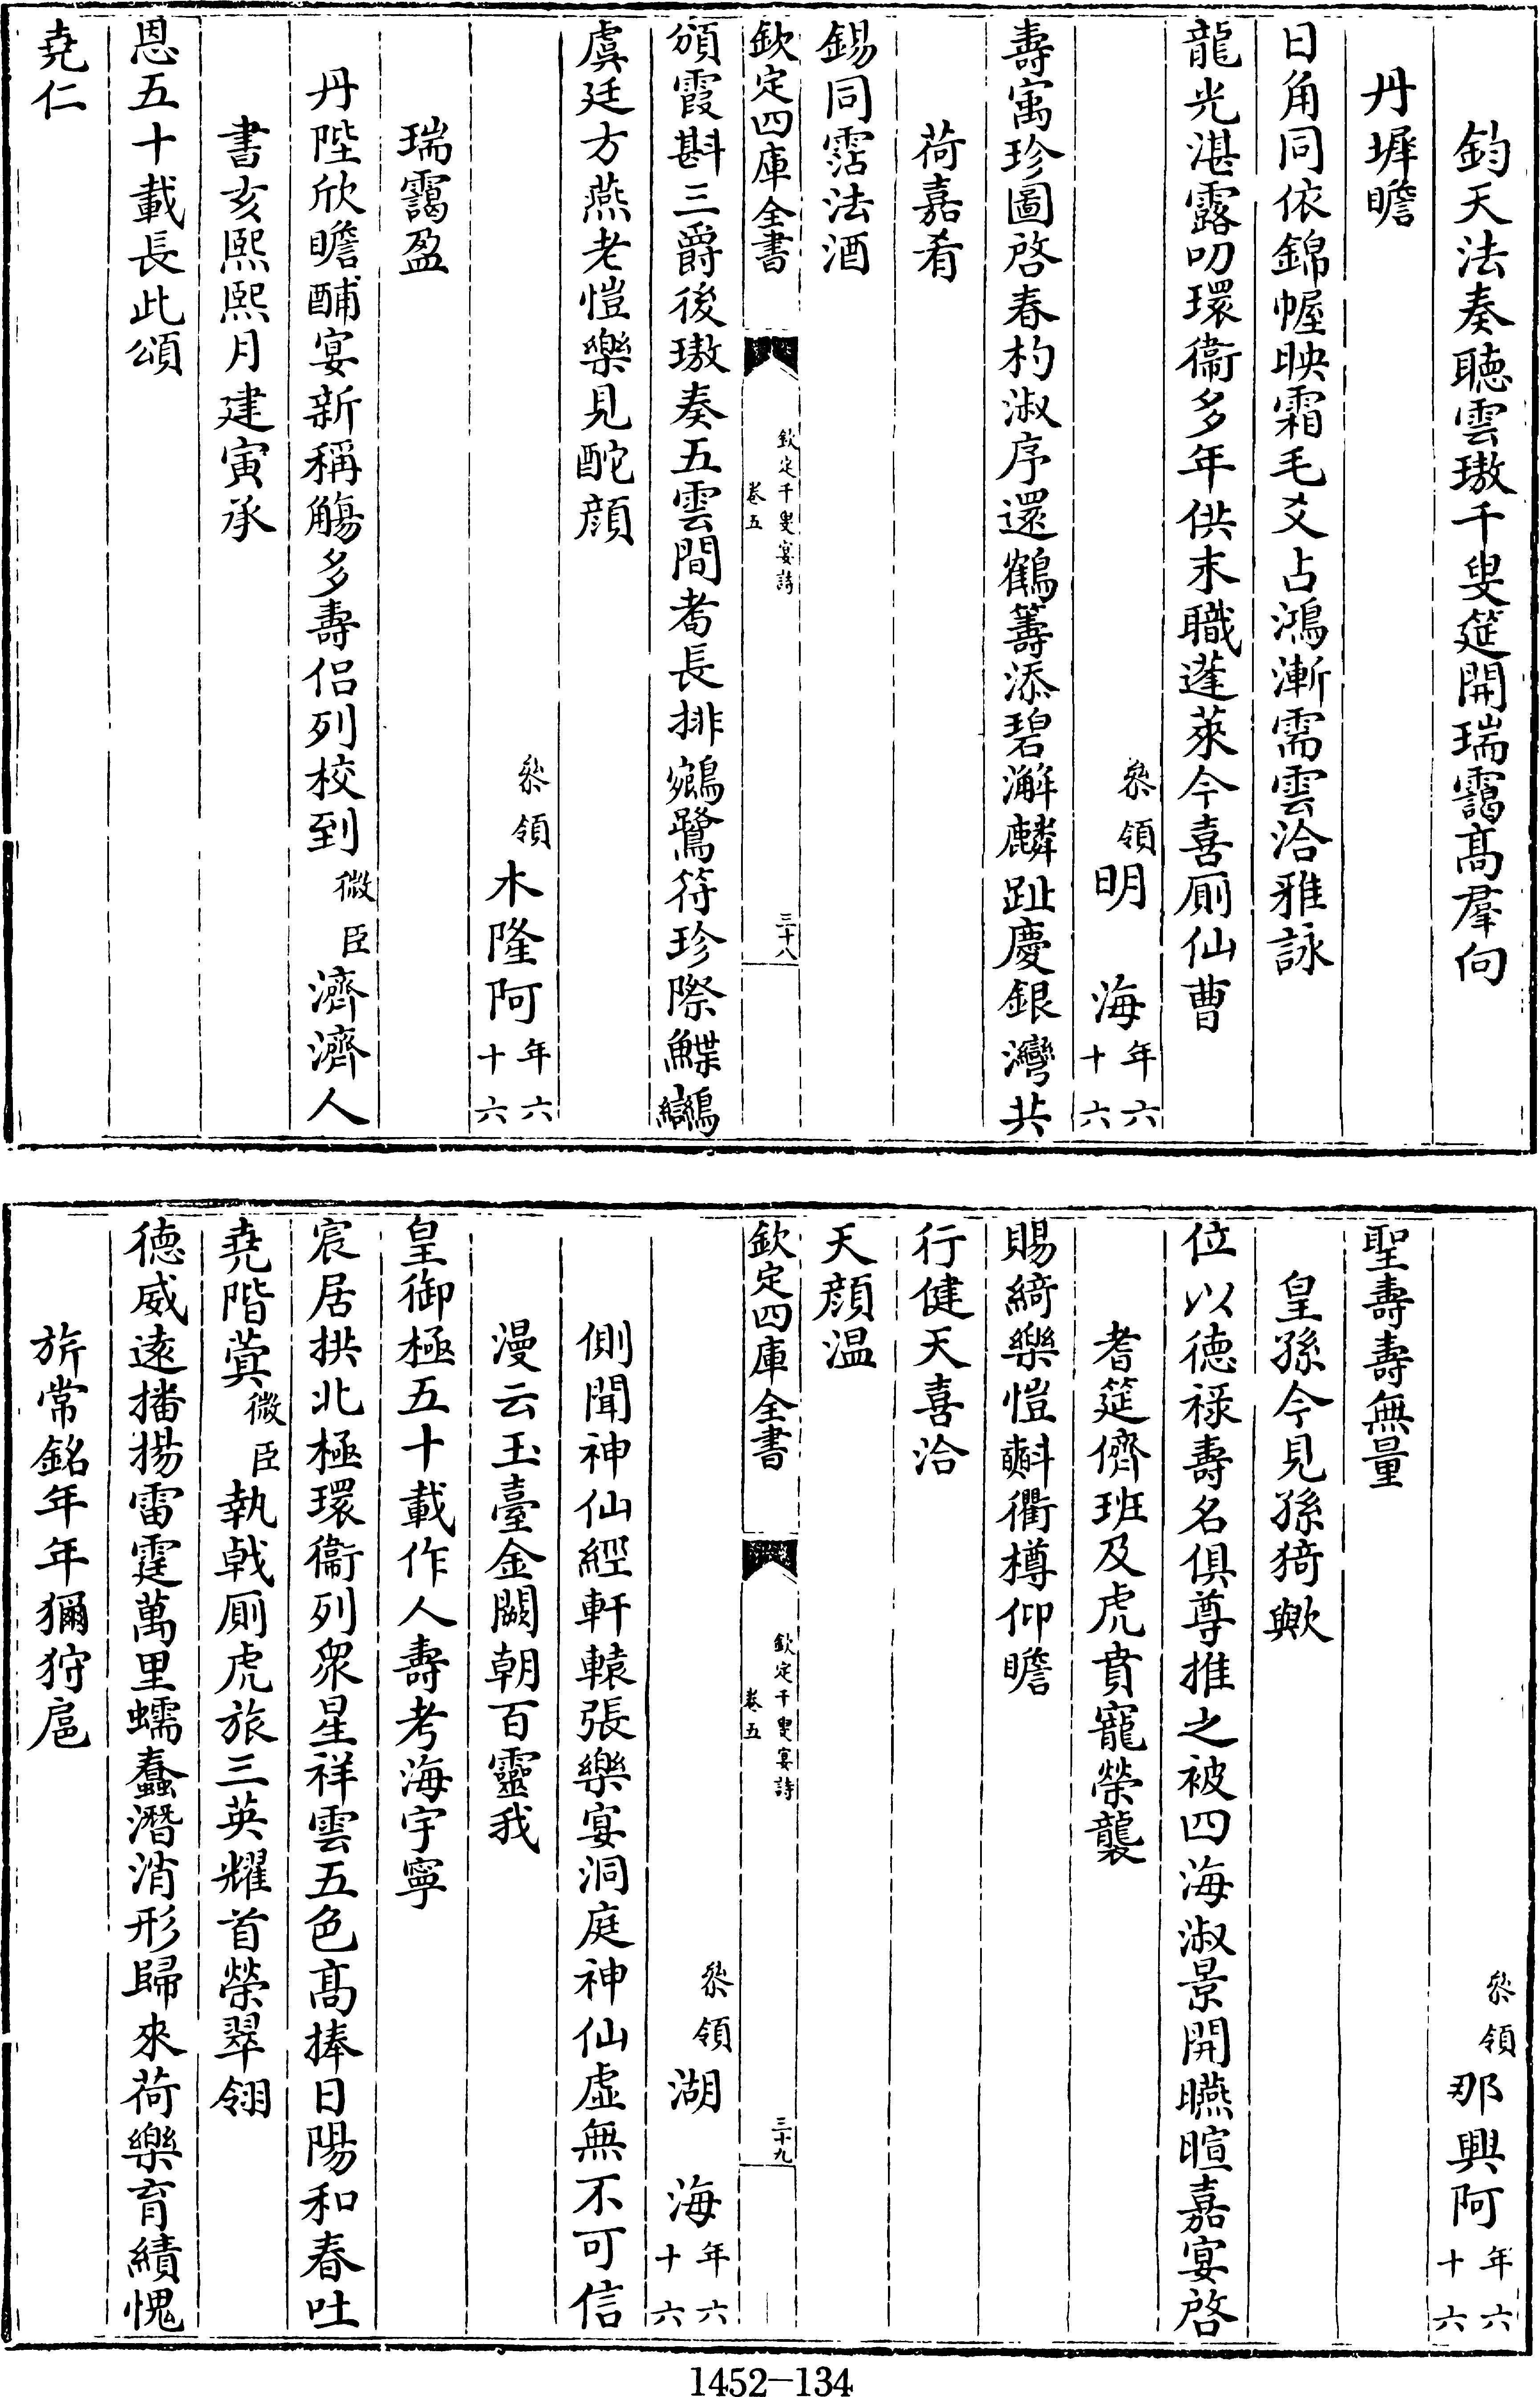 鈞天法奏聽雲璈千叟筵開瑞靄高羣向
丹墀瞻
日角同依錦幄映霜毛爻占鴻漸需雲洽雅詠
龍光湛露叨環衞多年供末職蓬萊今喜厠仙曹
叅領明　海年六十六
壽寓珍圖啓春杓淑序還鶴籌添碧澥麟趾慶銀灣共
荷嘉肴
錫同霑法酒
欽定四庫全書
欽定千叟宴詩
卷五
三十八
頒霞斟三爵後璈奏五雲間耈長排鵷鷺符珍際鰈鶼
虞廷方燕老愷樂見酡顔
叅領木隆阿年六十六
瑞靄盈
丹陛欣瞻酺宴新稱觴多壽侣列校到微臣濟濟人
書亥熙熙月建寅承
恩五十載長此頌
堯仁
叅領那興阿年六十六
聖壽壽無量
皇孫今見孫猗歟
位以德禄壽名俱尊推之被四海淑景開曣暄嘉宴啓
耆筵儕班及虎賁寵榮襲
賜綺樂愷㪺衢樽仰瞻
行健天喜洽
天顔温
欽定四庫全書
欽定千叟宴詩
卷五
三十九
叅領湖　海年六十六
側聞神仙經軒轅張樂宴洞庭神仙虚無不可信
漫云玉臺金闕朝百靈我
皇御極五十載作人壽考海宇寧
宸居拱北極環衞列衆星祥雲五色髙捧日陽和春吐
堯階蓂微臣執戟厠虎旅三英耀首榮翠翎
德威遠播揚雷霆萬里蠕蠢潛消形歸來荷樂育績愧
旂常銘年年獮狩扈
1452-134